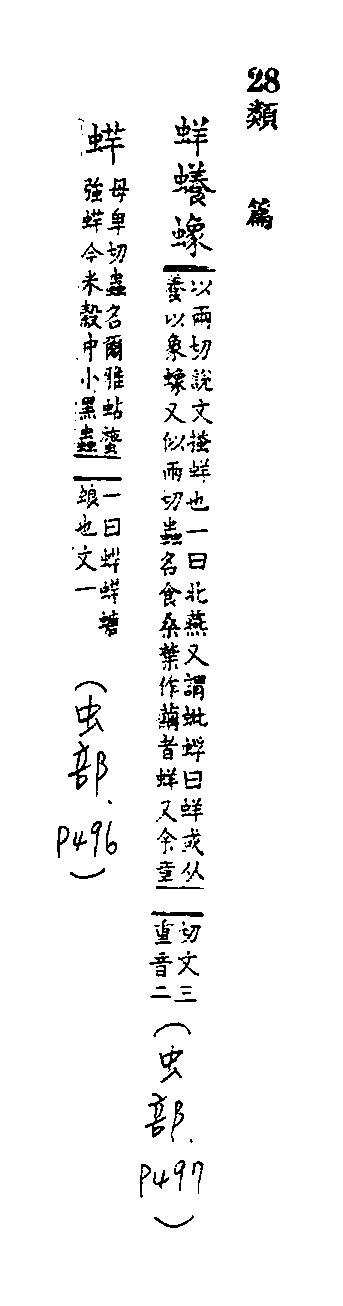 28類 篇
蛘蠁蟓
以兩切說文搔蛘也一曰北燕又謂蚍蜉曰蛘或从
養以象蟓又似兩切蟲名食桑葉作繭者蛘又余章
切文三
重音二
(虫部.P497)
蛘
母卑切蟲名爾雅蛄䗐
強蛘今米穀中小黑蟲
一曰蛘蛘螗
蜋也文一
(虫部.P496)